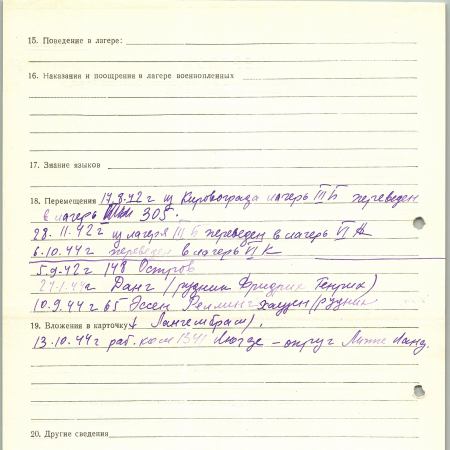 15. Поведение в лагере:
16. Наказания и поощрения в лагере военнопленных
17. Знание языков
18. Перемещения 17.8.42 г из Кировограда лагерь III Б переведен
в лагерь 305.
28. 11. 42 г из лагеря III Б переведен в лагерь VI А
6.10.44 г переведен в лагерь VI К
5.9.42 г 148 Остров
27.1.44 г Данг (рудник Фридрих Генрих)
10.9.44 г 65 Эссен Реллингхаузен (рудник
19. Вложения в карточку Лангембрам).
13.10.44 г раб. ком 1341 Люгде - округ Липпе
20. Другие сведения